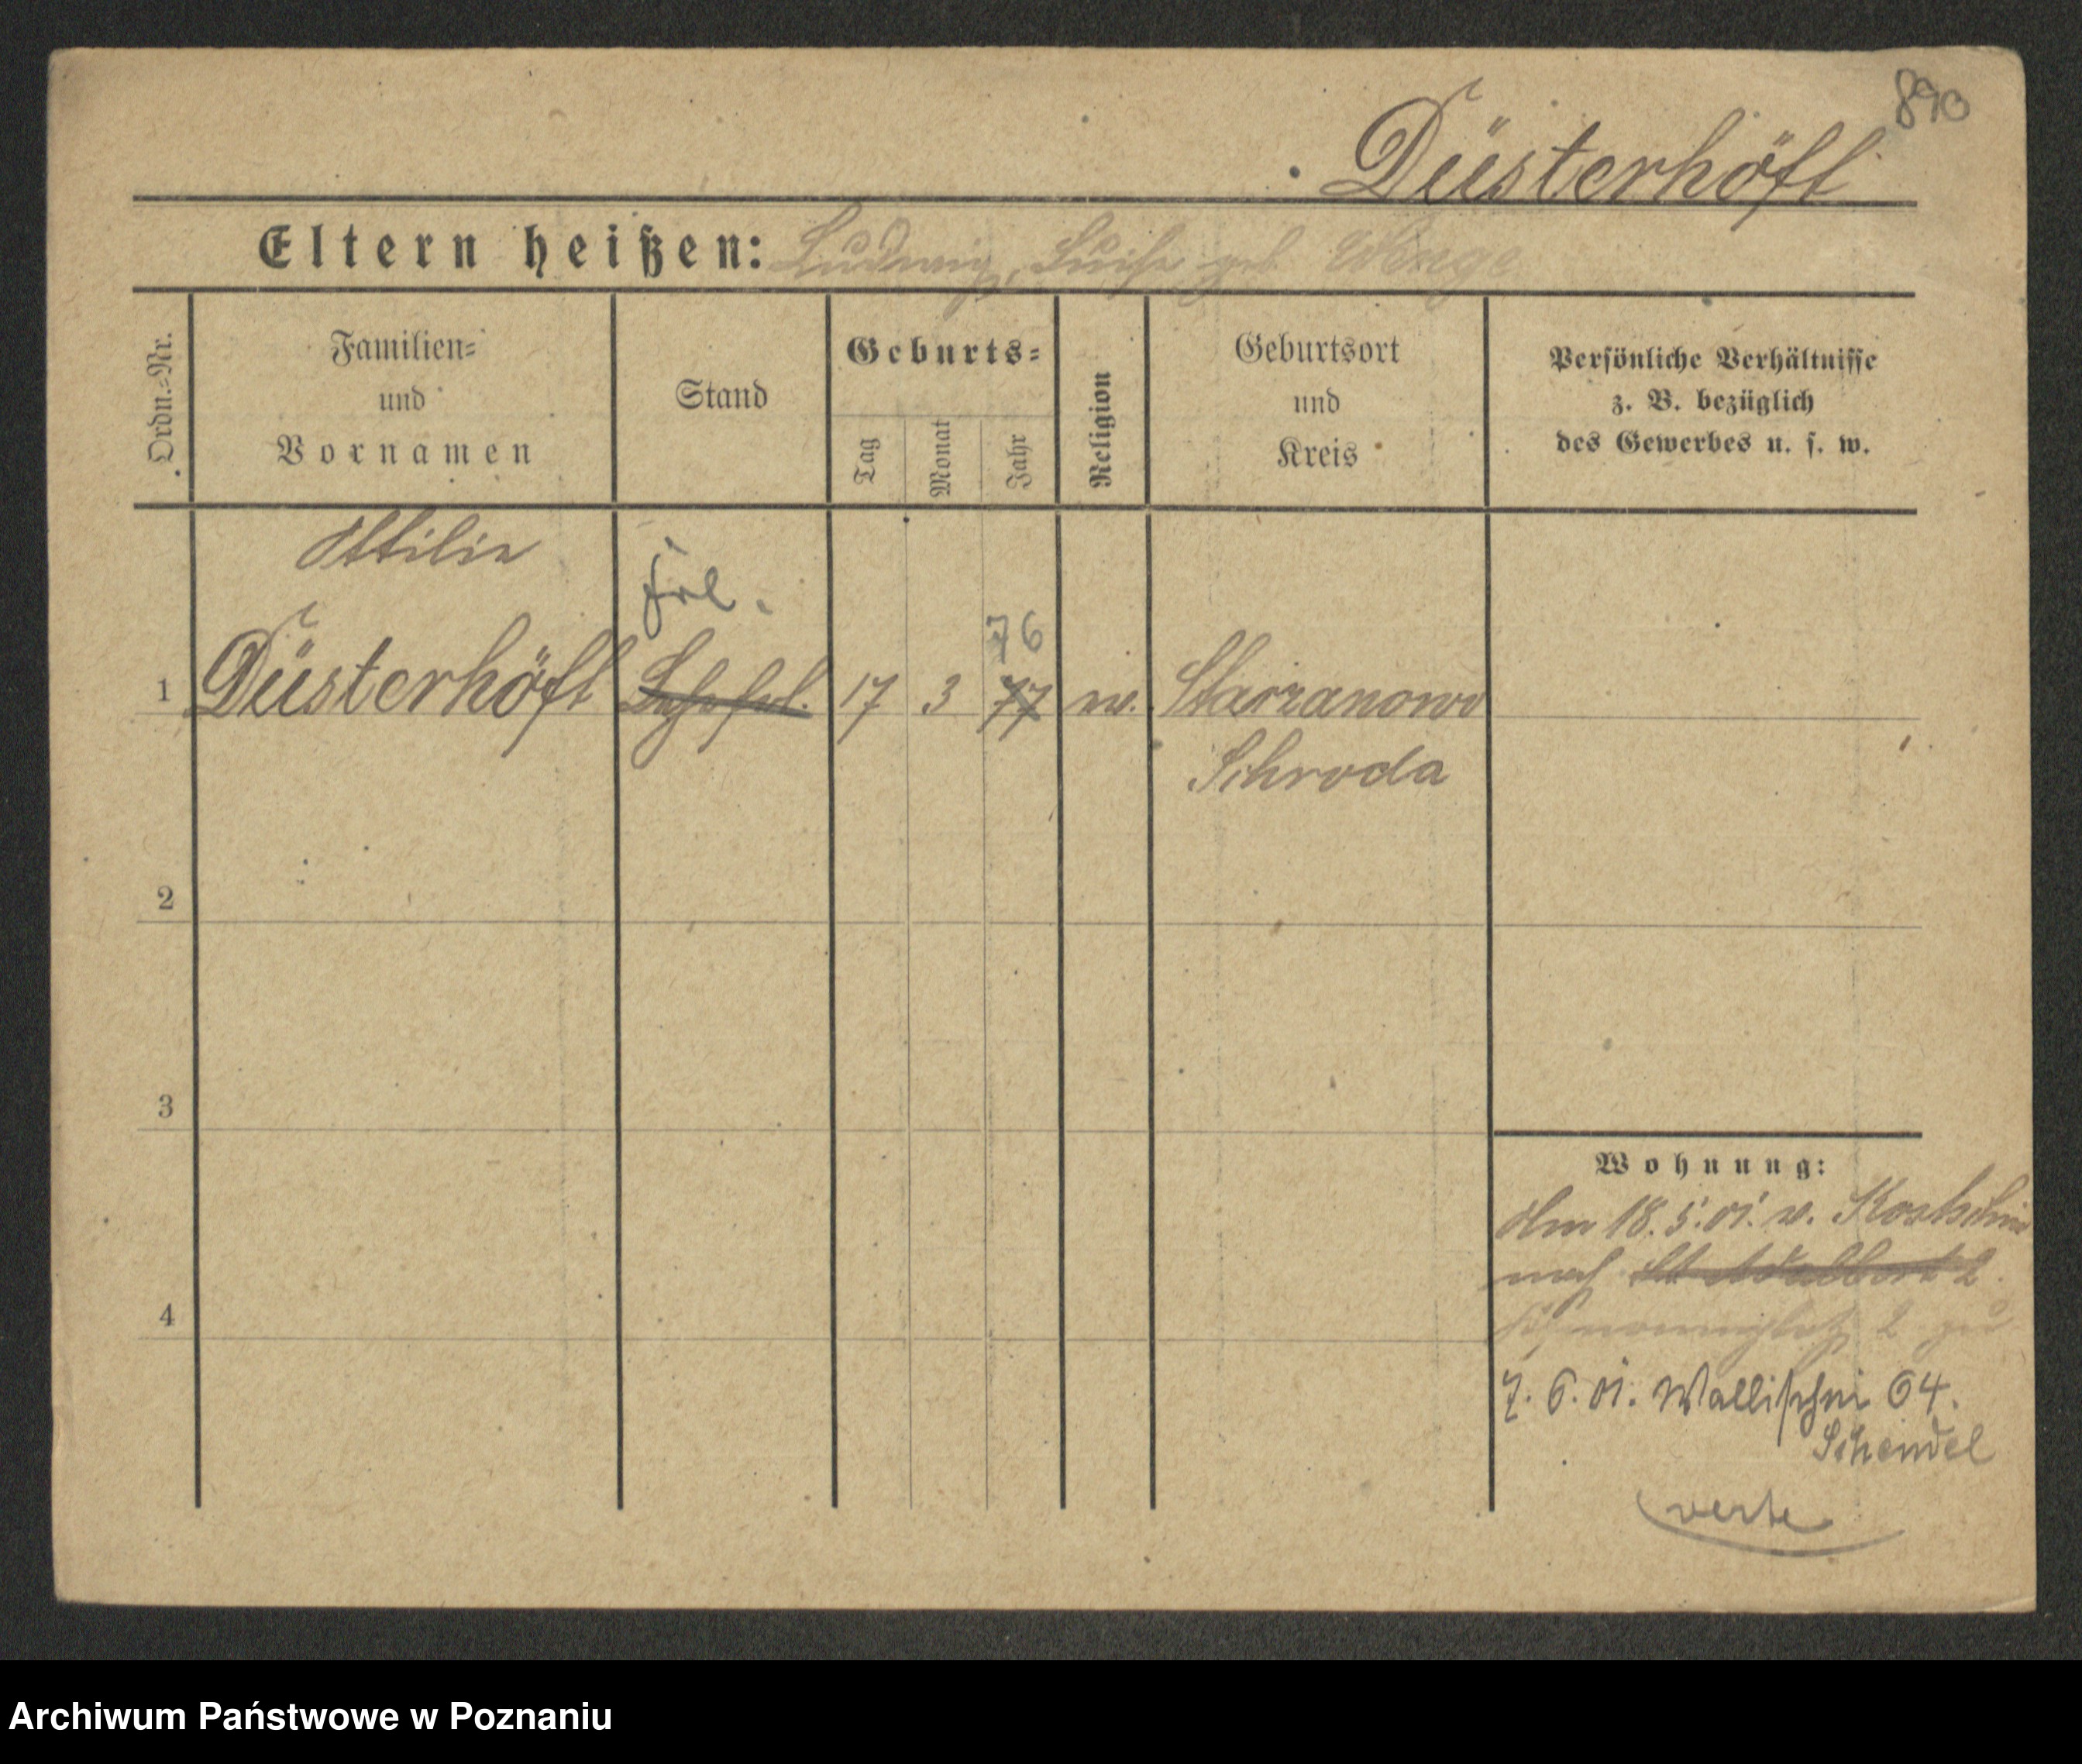 890
Düsterhöft
Eltern heißen: Ludwig, Luise geb. Wenge
Ordn.-Nr.
Familien-
und
Vornamen
Stand
Geburts-
Tag
Monat
Jahr
Religion
Geburtsort
und
Kreis
Persönliche Verhältnisse
z. B. bezüglich
des Gewerbes u. s. w.
Ottilie
Frl.
76
1 Düsterhöft 17 3 77 w. Starzanowo
Schroda
2
3
4
Wohnung:
Am 18.5.01. v. Kostschin
nach St Adalbert 2
2 zu
7.6.01. Wallischei 64.
Schendel
verte
Archiwum Państwowe w Poznaniu